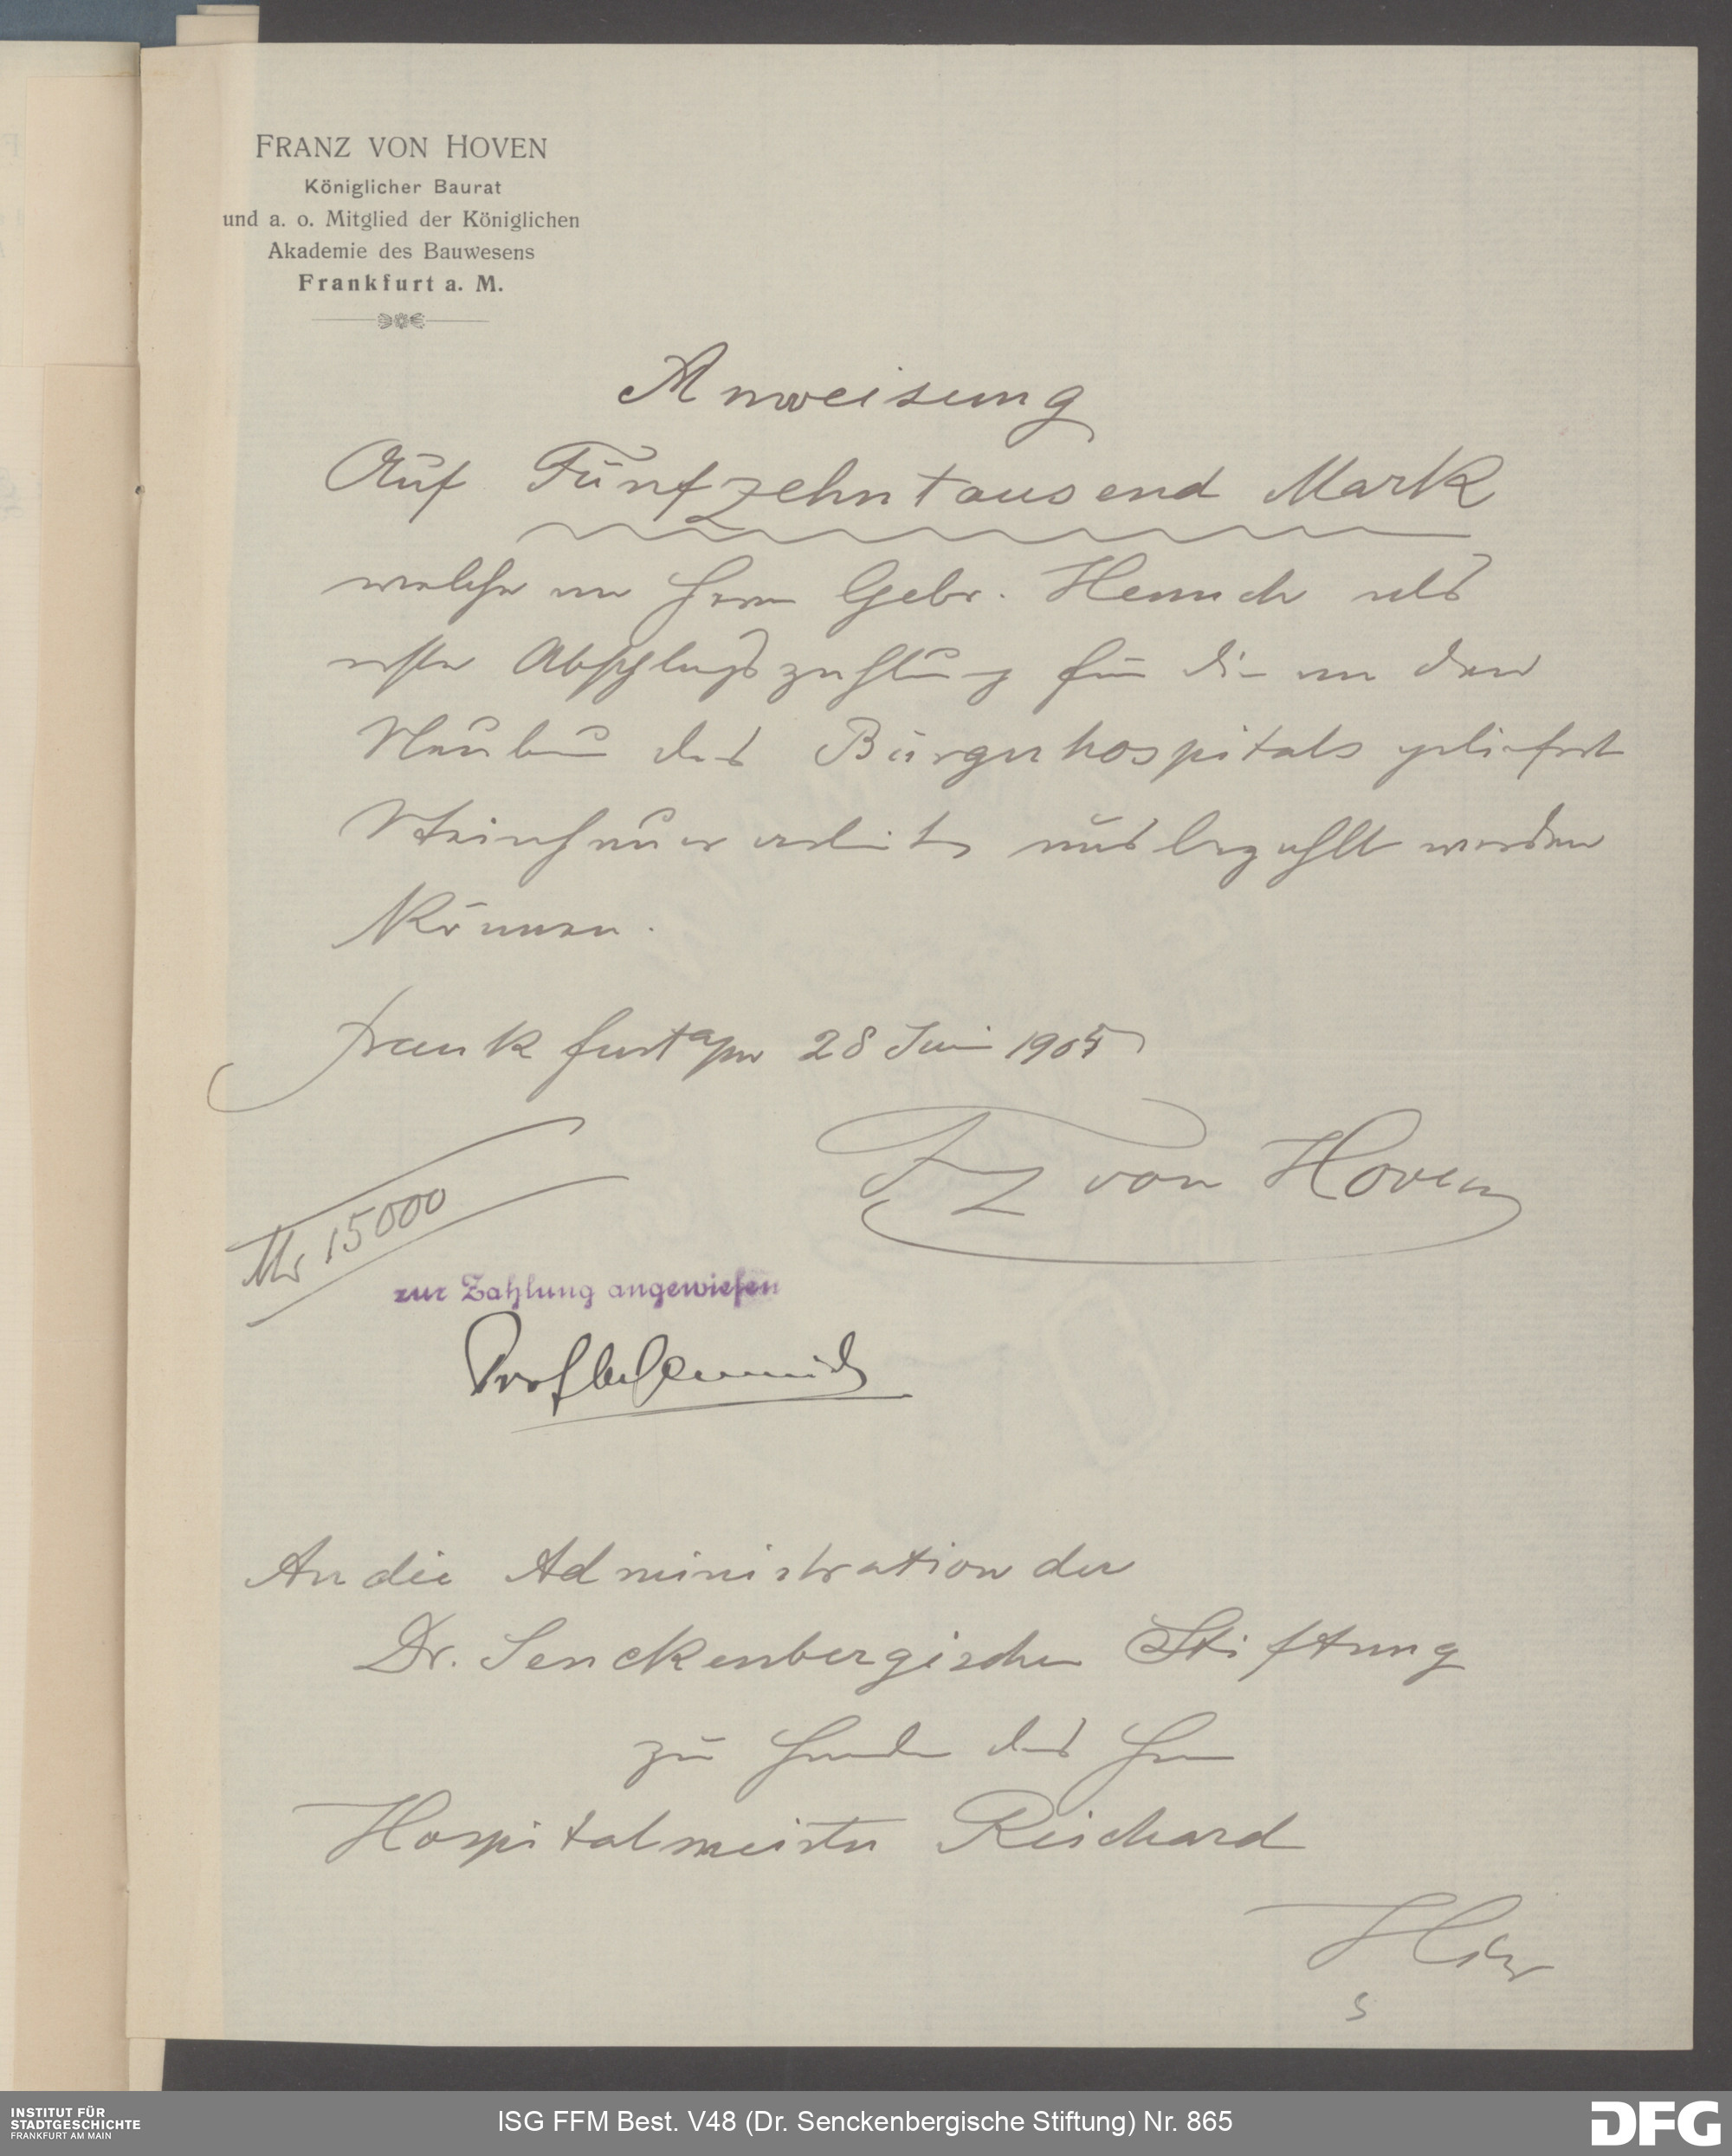 FRANZ VON HOVEN
Königlicher Baurat
und a. o. Mitglied der Königlichen
Akademie des Bauwesens
Frankfurt a. M.
Anweisung
Auf Fünfzehntausend Mark
welche an Herrn Gebr. Hennich als
erste Abschlagszahlung für die an dem
Neubau des Bürgerhospitals geliefert
Steinhauerarbeiten ausbezahlt werden
können.
Frankfurt a/M 28 Juni 1905
Fz von Hoven
Mk 15000
zur Zahlung angewiesen
An die Administration der
Dr. Senckenbergischen Stiftung
zu Handen des Herrn
Hospitalmeister Reichard
Hier
INSTITUT FÜR
STADTGESCHICHTE
FRANKFURT AM MAIN
ISG FFM Best. V48 (Dr. Senckenbergische Stiftung) Nr. 865
DFG